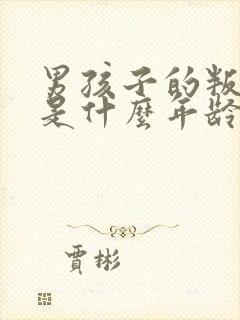 男孩子的叛
是什麼年齡
賈彬